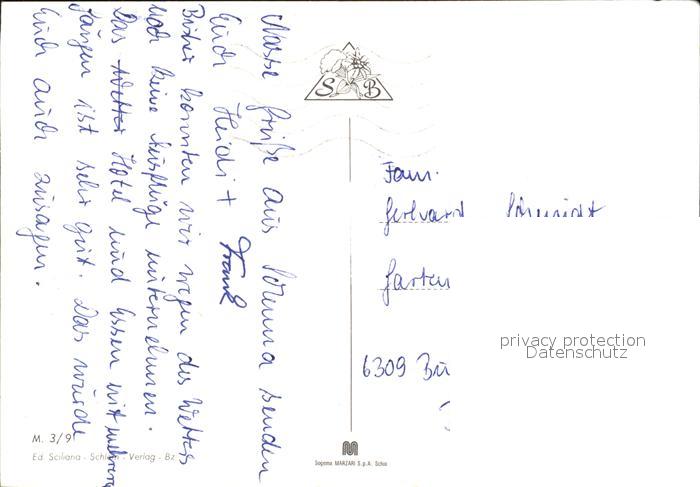 Nasse Grüße aus Schenna senden
Euch Heidi + Frank
Bisher konnten wir wegen des Wetters
noch keine Ausflüge unternehmen.
Das Wetter Hotel und Essen mit mehreren
Gängen ist sehr gut. Das würde
Euch auch zusagen.
S B
Fam.
Gerhard Schmidt
Garten
6309 Bu
privacy protection
Datenschutz
M. 3/9
Ed. Sciliana - Schlern - Verlag - Bz
m
Sogema MARZARI S.p.A. Schio